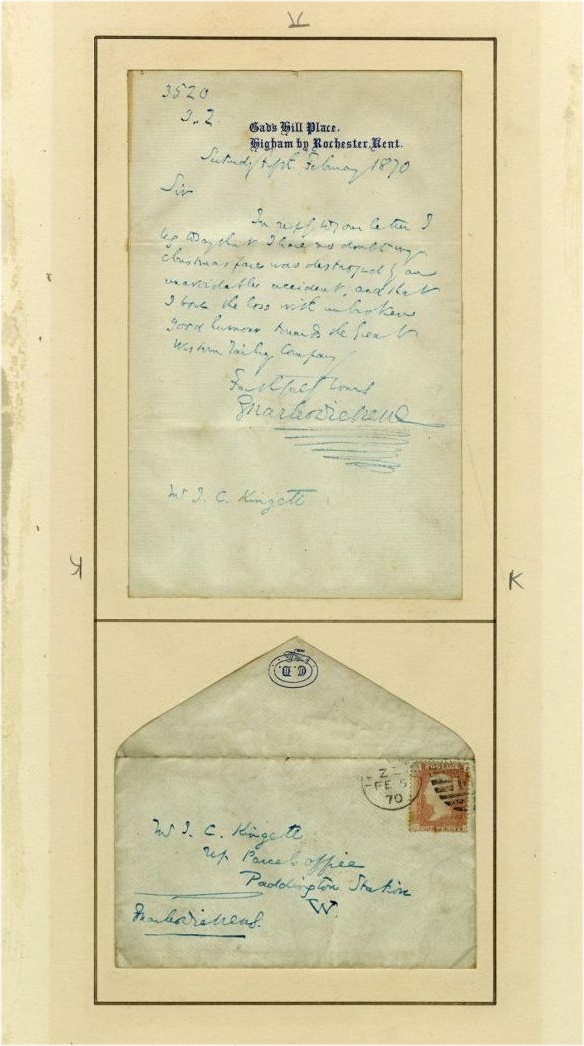 3520
3.2.
Gad's Hill Place,
Higham by Rochester, Kent.
Saturday Fifth February 1870
Sir
In reply to your letter I
beg to say that I have no doubt my
Christmas fare was destroyed by an
unavoidable accident, and that
I bore the loss with unbroken
good humour towards the Great
Western Railway Company
Faithfully Yours
Charles Dickens
Mr J. C. Kingett
K
K
C.D.
Z
FE 5
70
Mr J. C. Kingett
Up Parcels office
Paddington Station
W.
Charles Dickens.